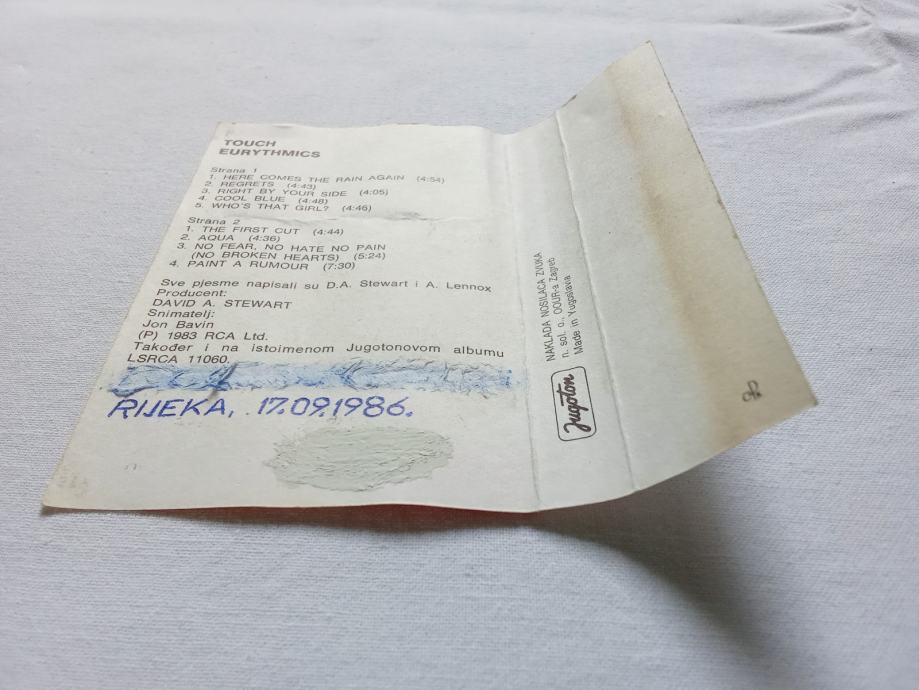 TOUCH
EURYTHMICS
Strana 1
1. HERE COMES THE RAIN AGAIN (4:54)
2. REGRETS (4:43)
3. RIGHT BY YOUR SIDE (4:05)
4. COOL BLUE (4:48)
5. WHO'S THAT GIRL? (4:46)
Strana 2
1. THE FIRST CUT (4:44)
2. AQUA (4:36)
3. NO FEAR, NO HATE NO PAIN
(NO BROKEN HEARTS) (5:24)
4. PAINT A RUMOUR (7:30)
Sve pjesme napisali su D.A. Stewart i A. Lennox
Producent:
DAVID A. STEWART
Snimatelj:
Jon Bavin
(P) 1983 RCA Ltd.
Također i na istoimenom Jugotonovom albumu
LSRCA 11060.
RIJEKA, 17.09.1986.
Jugoton
NAKLADA NOSILACA ZVUKA
n. sol. o., OOUR-a Zagreb
Made in Yugoslavia